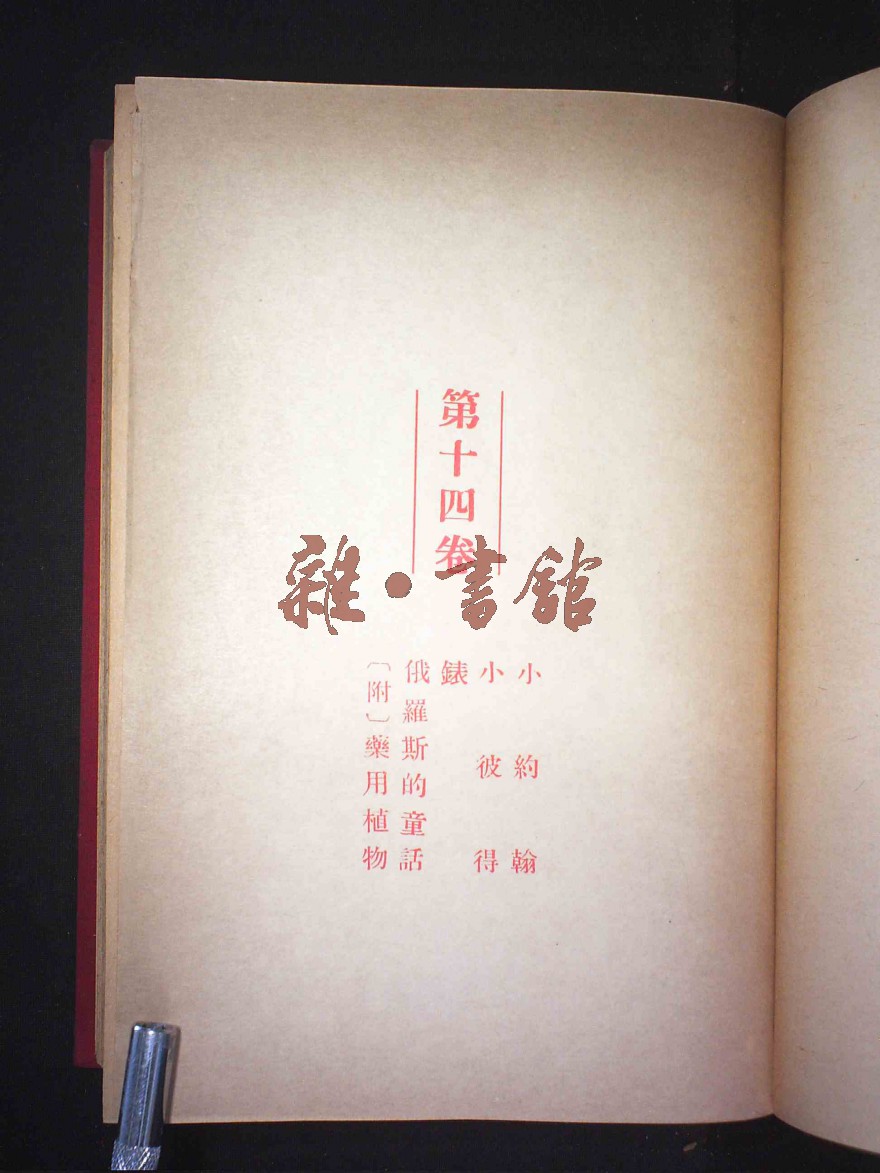 第十四卷
小約翰
小彼得
錶
俄羅斯的童話
〔附〕藥用植物
雜·書館